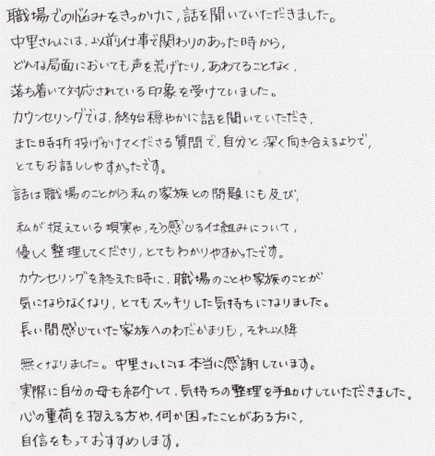 職場での悩みをきっかけに、話を聞いていただきました。
中里さんには、以前仕事で関わりのあった時から、
どんな局面においても声を荒げたり、あわてることなく、
落ち着いて対応されている印象を受けていました。
カウンセリングでは、終始穏やかに話を聞いていただき、
また時折投げかけてくださる質問で、自分と深く向き合えるようで、
とてもお話ししやすかったです。
話は職場のことから私の家族との問題にも及び、
私が捉えている現実や、そう感じる仕組みについて、
優しく整理してくださり、とてもわかりやすかったです。
カウンセリングを終えた時に、職場のことや家族のことが
気にならなくなり、とてもスッキリした気持ちになりました。
長い間感じていた家族へのわだかまりも、それ以降
無くなりました。中里さんには本当に感謝しています。
実際に自分の母も紹介して、気持ちの整理を手助けしていただきました。
心の重荷を抱える方や、何か困ったことがある方に、
自信をもっておすすめします。